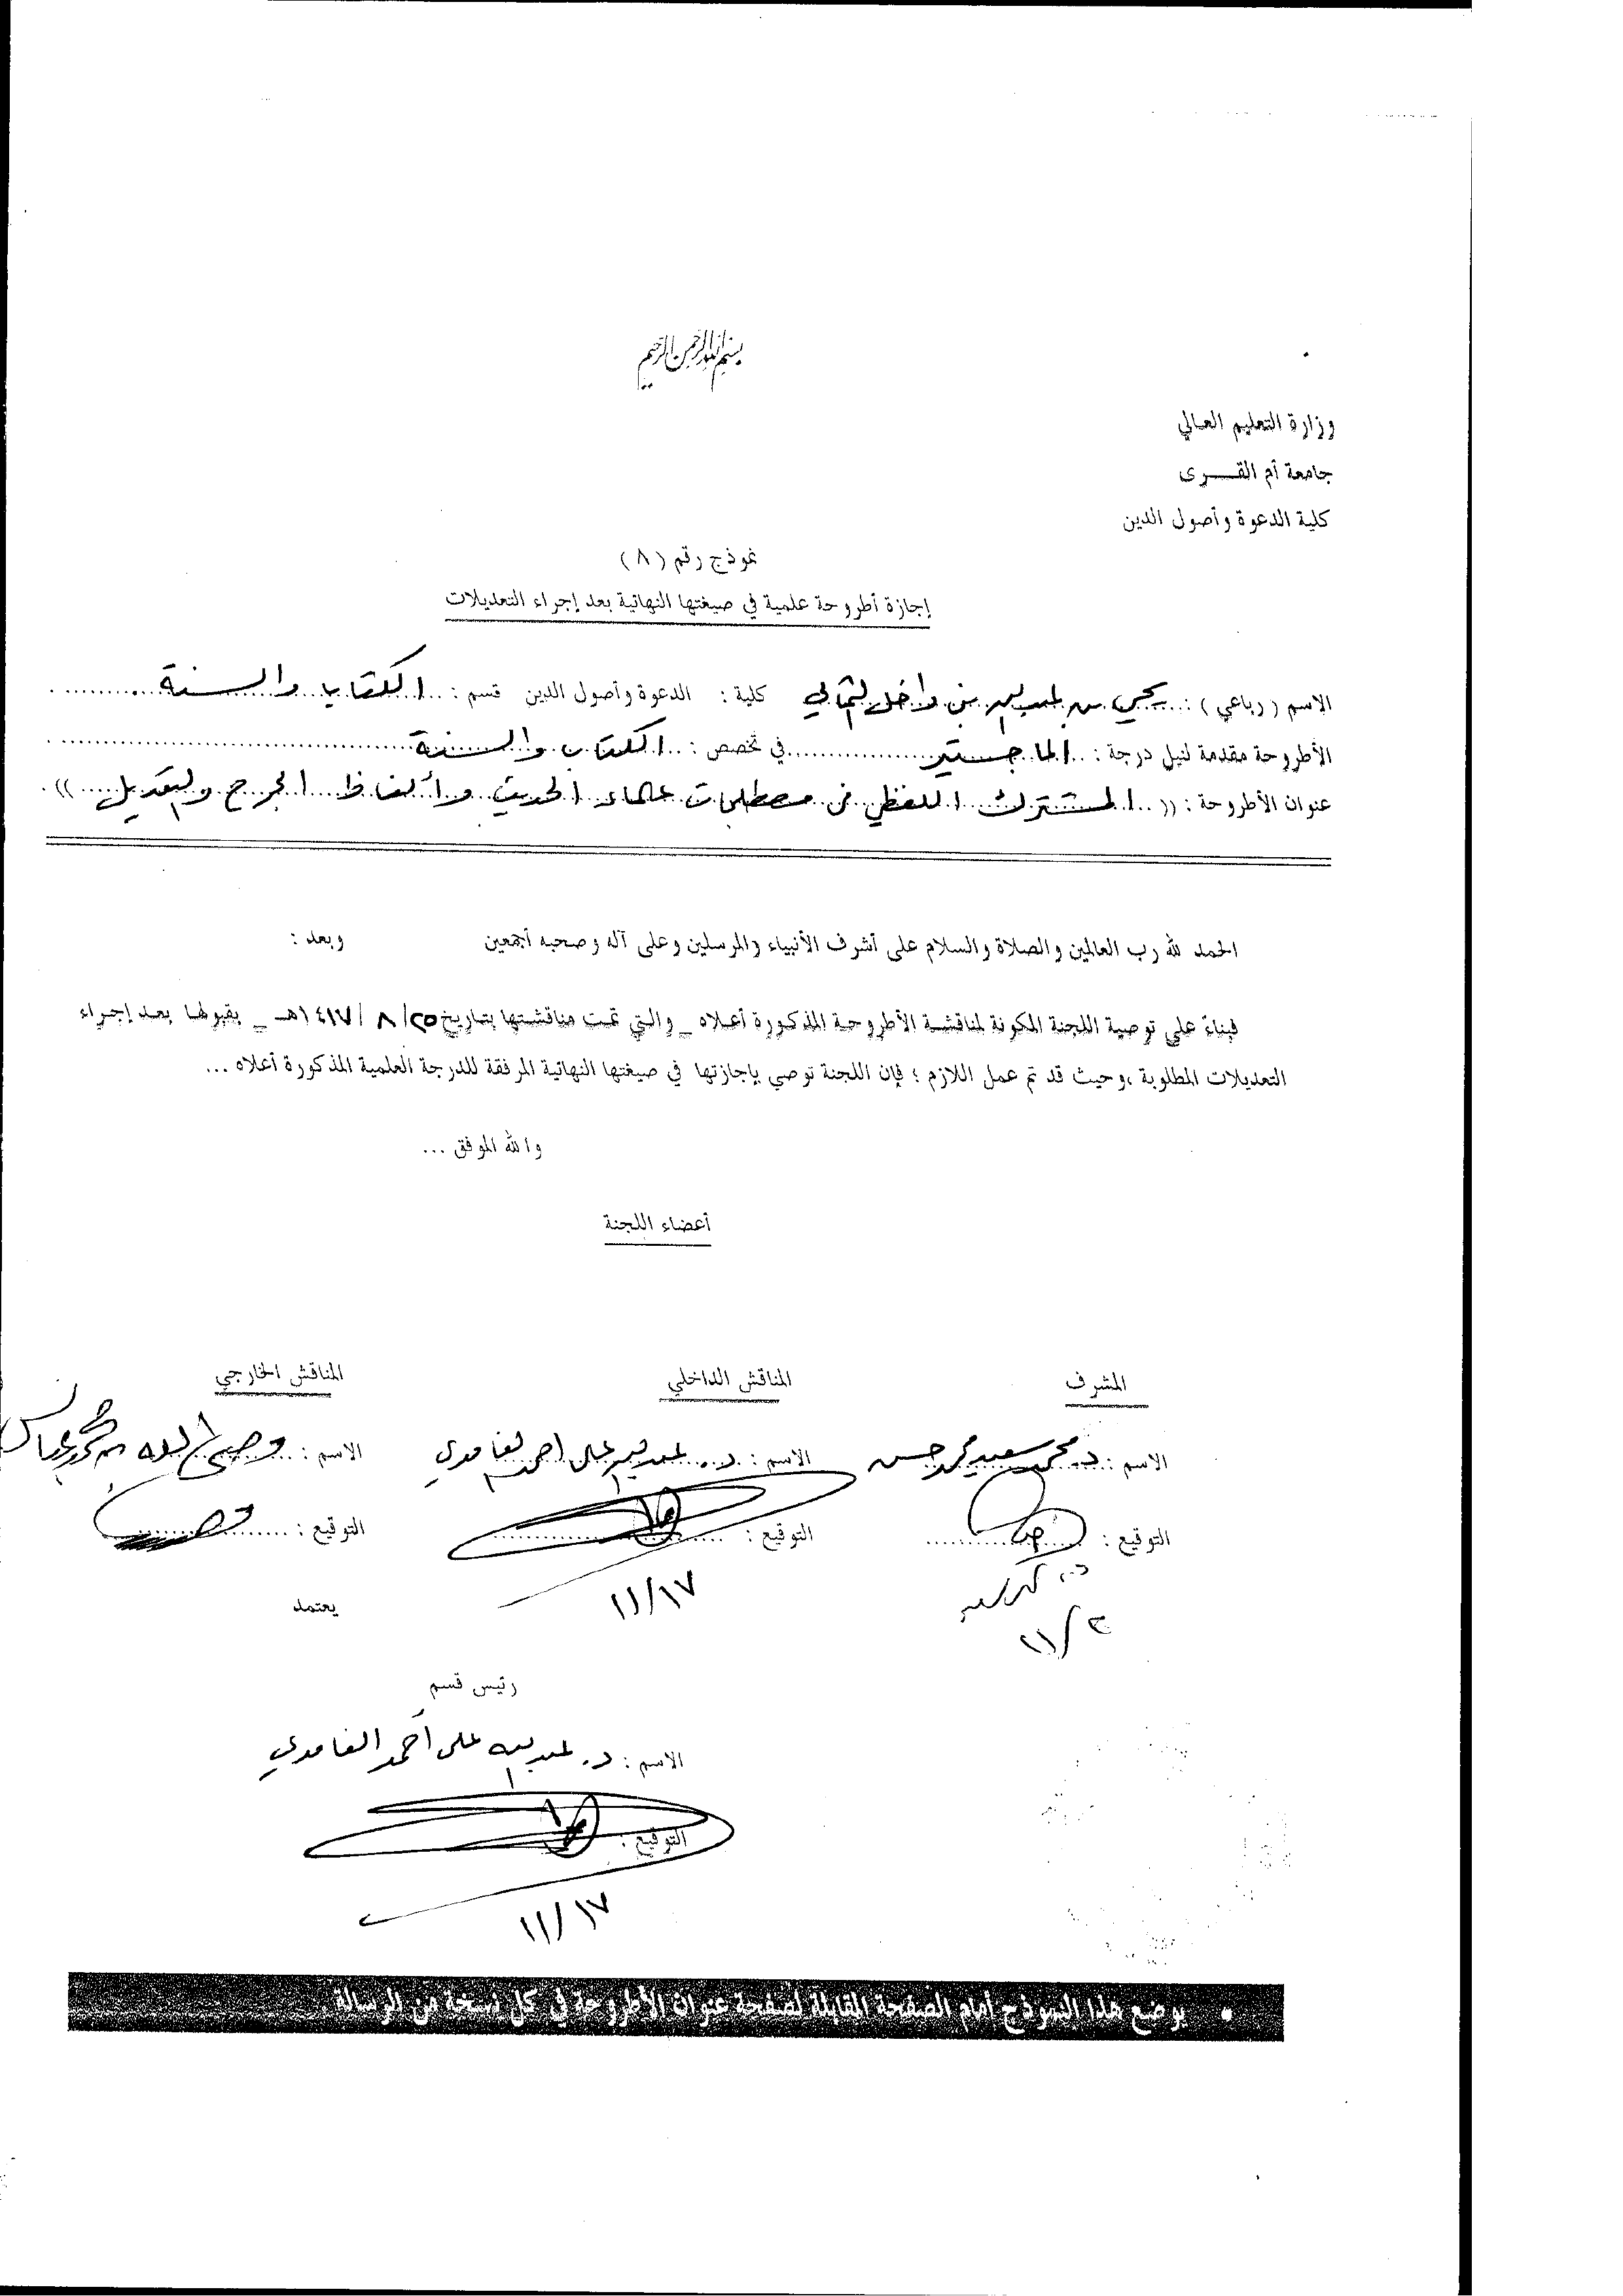 بسم الله الرحمن الرحيم
وزارة التعليم العالي
جامعة أم القرى
كلية الدعوة وأصول الدين
نموذج رقم (٨)
إجازة أطروحة علمية في صيغتها النهائية بعد إجراء التعديلات
الاسم (رباعي) : يحيى بن عبدالله بن الثمالي كلية : الدعوة وأصول الدين قسم : الكتاب والسنة
الأطروحة مقدمة لنيل درجة : الماجستير في تخصص : الكتاب والسنة
عنوان الأطروحة : (( المشترك اللفظي في مصطلحات علماء الحديث وألفاظ الجرح والتعديل ))
الحمد لله رب العالمين والصلاة والسلام على أشرف الأنبياء والمرسلين وعلى آله وصحبه أجمعين وبعد :
فبناءً على توصية اللجنة المكونة لمناقشة الأطروحة المذكورة أعلاه _ والتي تمت مناقشتها بتاريخ ٢٥/ ٨ / ١٤١٧هـ _ بقبولها بعد إجراء
التعديلات المطلوبة ،وحيث قد تم عمل اللازم ؛ فإن اللجنة توصي بإجازتها في صيغتها النهائية المرفقة للدرجة العلمية المذكورة أعلاه ...
والله الموفق ...
أعضاء اللجنة
المشرف المناقش الداخلي المناقش الخارجي
الاسم : د. محمد سعيد محمد حسن الاسم : د. عبدالله علي أحمد الغامدي الاسم : وصي الله بن محمد عباس
التوقيع : التوقيع : التوقيع :
١١/١٧
يعتمد
رئيس قسم
الاسم : د. عبدالله علي أحمد الغامدي
التوقيع :
١١/١٧
• يوضع هذا النموذج أمام الصفحة المقابلة لصفحة عنوان الأطروحة في كل نسخة من الرسالة .